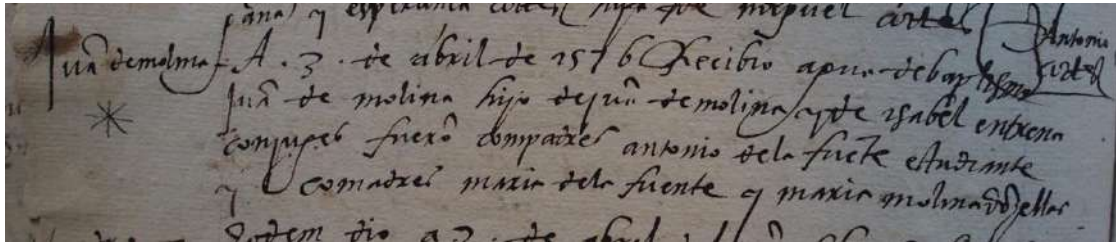 y esperança cortes hija de miguel cortes
Antonio
cortes
Juā de molina
A . 3 . de abril de 1576 Recibio agua de baptismo
juā de molina hijo de juā de molina y de isabel entrena
conjuges fuerō compadres antonio dela fuēte estudiante
y comadres maria dela fuente y maria molina dōzellas
Eodem die a 3 . de abril